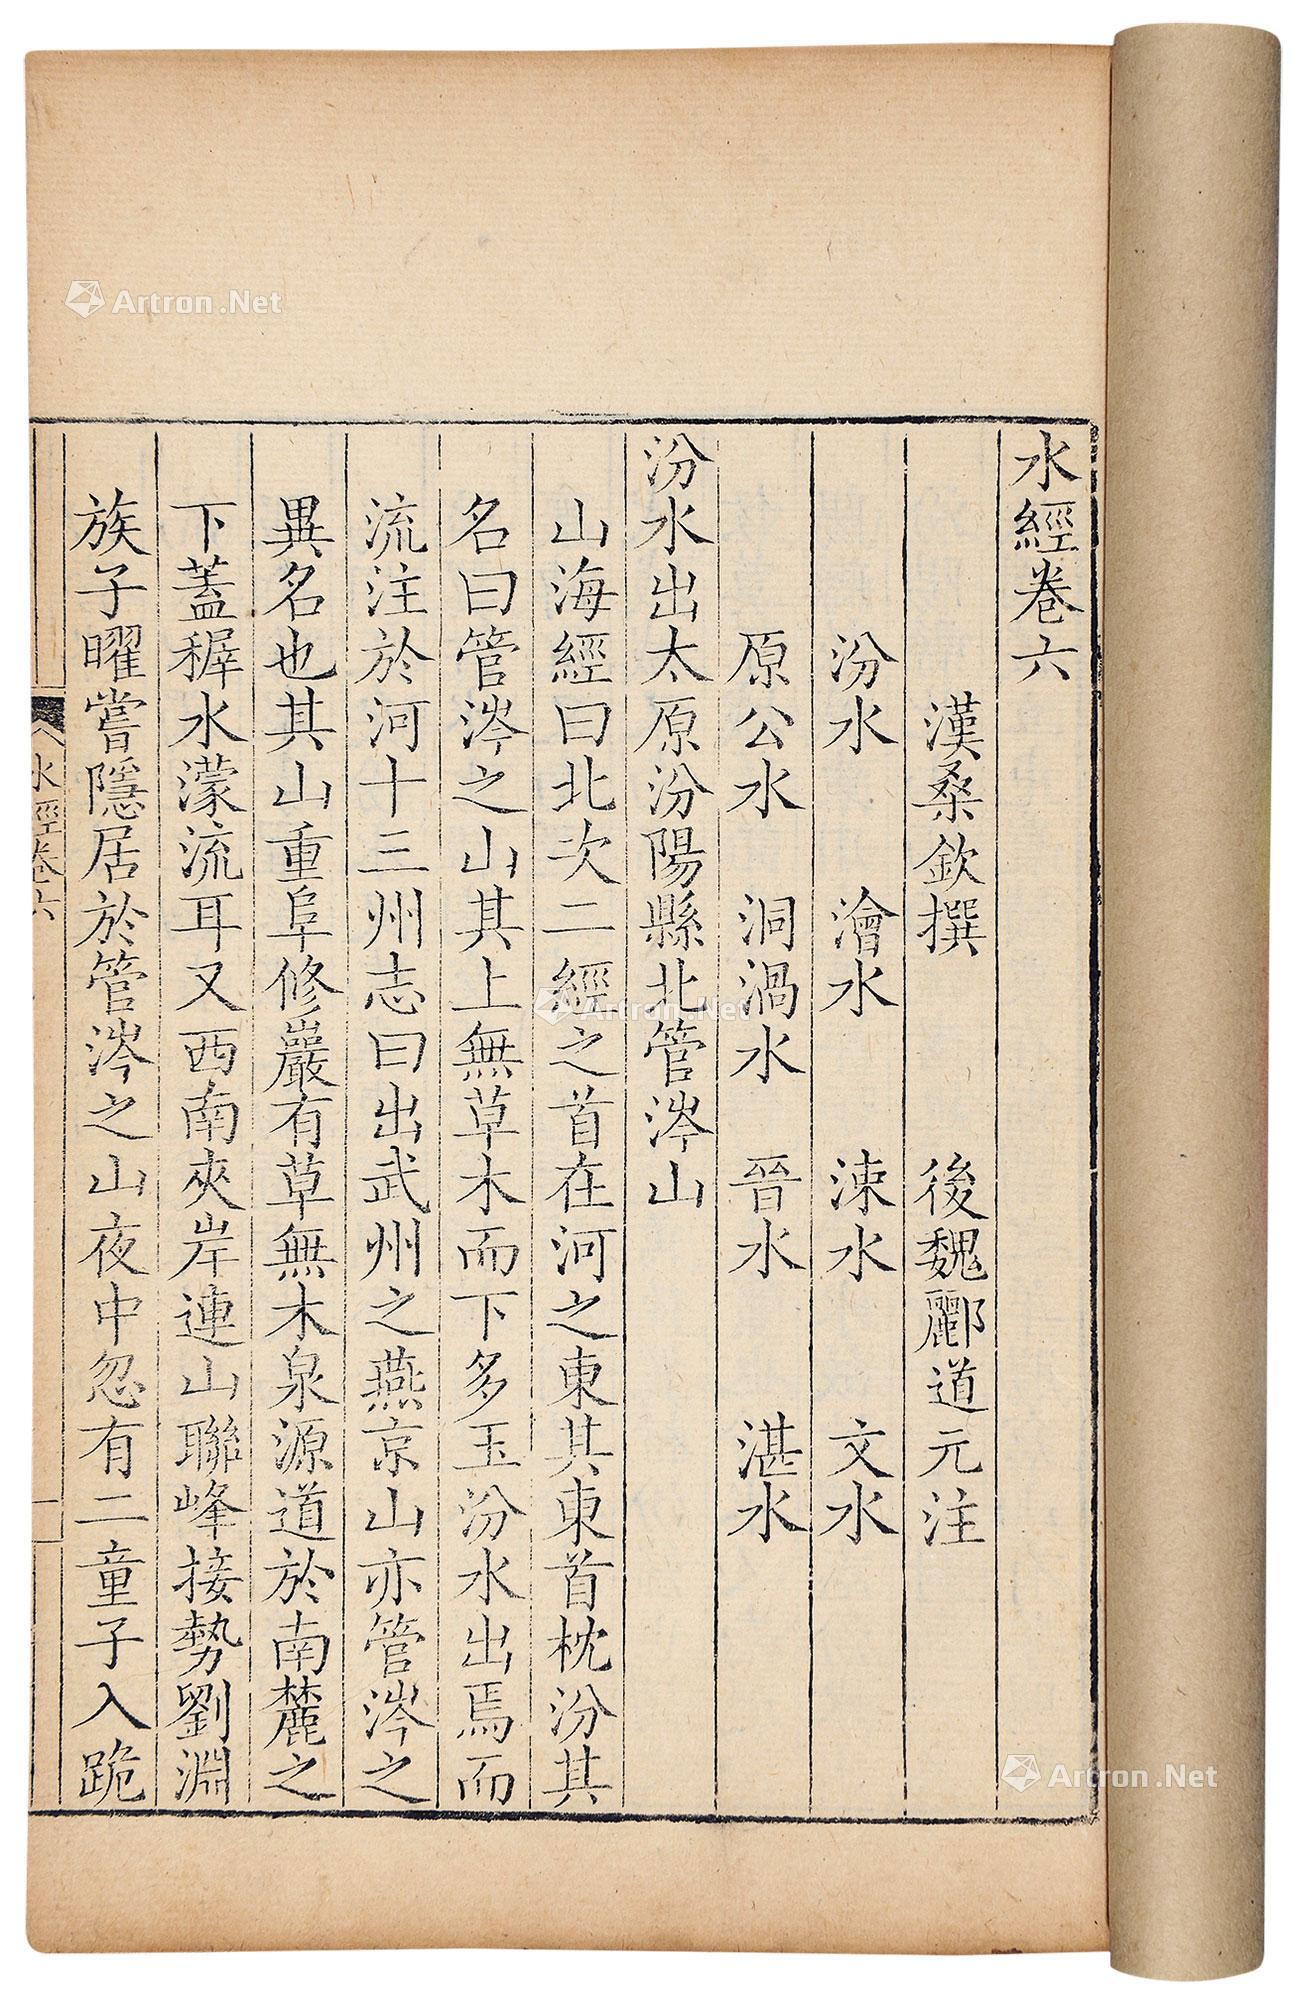 水經卷六
漢桑欽撰 後魏酈道元注
汾水 澮水 涑水 文水
原公水 洞渦水 晉水 湛水
汾水出太原汾陽縣北管涔山
山海經曰北次二經之首在河之東其東首枕汾其
名曰管涔之山其上無草木而下多玉汾水出焉而
流注於河十三州志曰出武州之燕京山亦管涔之
異名也其山重阜修巖有草無木泉源道於南麓之
下蓋稺水濛流耳又西南夾岸連山聯峰接勢劉淵
族子曜嘗隱居於管涔之山夜中忽有二童子入跪
水經卷六
一
Artron.Net
Artron.Net
Artron.Net